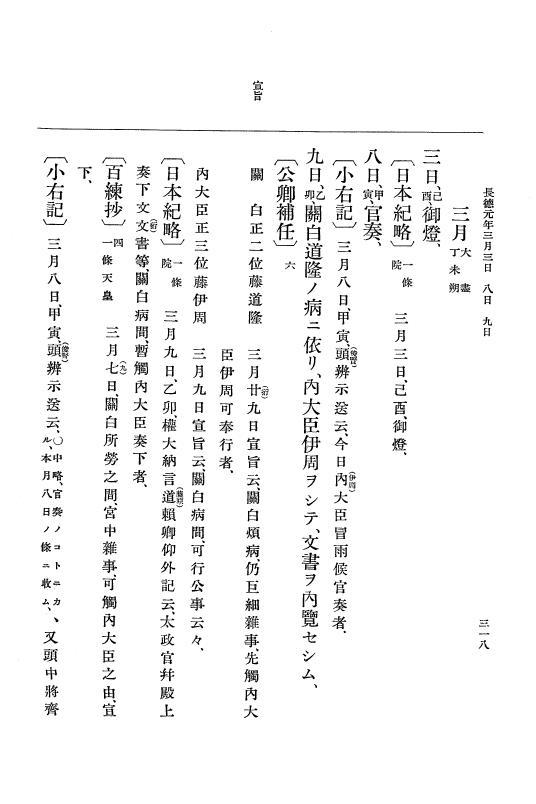 長德元年三月三日 八日 九日
三一八
宣旨
三月大盡丁未朔
三日、己酉、御燈、
〔日本紀略〕一條院 三月三日、己酉、御燈、
八日、甲寅、官奏、
〔小右記〕三月八日、甲寅、頭辨(俊賢)示送云、今日內(伊周)大臣冒雨候官奏者、
九日、乙卯、關白道隆ノ病ニ依リ、內大臣伊周ヲシテ、文書ヲ內覽セシム、
〔公卿補任〕六
關白正二位藤道隆 三月廿(衍)九日宣旨云、關白煩病、仍巨細雜事、先觸內大
臣伊周可奉行者、
內大臣正三位藤伊周 三月九日宣旨云、關白病間、可行公事云々、
〔日本紀略〕一條院 三月九日、乙卯、權大納言道賴(藤原)卿仰外記云、太政官幷殿上
奏下文文(衍)書等、關白病間、暫觸內大臣奏下者、
〔百練抄〕四一條天皇 三月七(九)日、關白所勞之間、宮中雜事、可觸內大臣之由、宣
下、
〔小右記〕三月八日、甲寅、頭辨(俊賢)示送云、〇中略、官奏ノコトニカヽル、本月八日ノ條ニ收ム、又頭中將齊